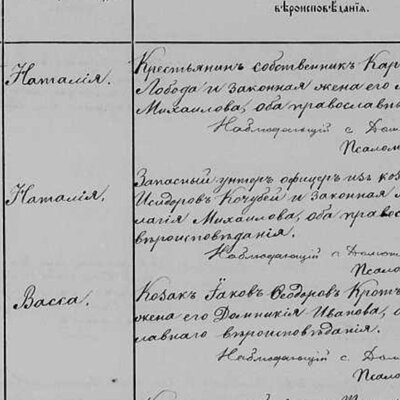 вѣроисповѣданія.
Наталія.
Крестьянинъ собственникъ Кар
Лобода и законная жена его
Михаилова, оба православны
Наблюдающій с. Дом
Псалом
Наталія.
Запасный унтеръ офицеръ изъ коз
Исидоръ Кочубей и законная
лагія Михаилова, оба правос
вѣроисповѣданія.
Наблюдающій с. Домон
Псало
Васса.
Козак Іаковъ Ѳеодоровъ Кротъ
жена его Домникія Иванова,
славнаго вѣроисповѣданія.
Наблюдающій с. Дом
Псал